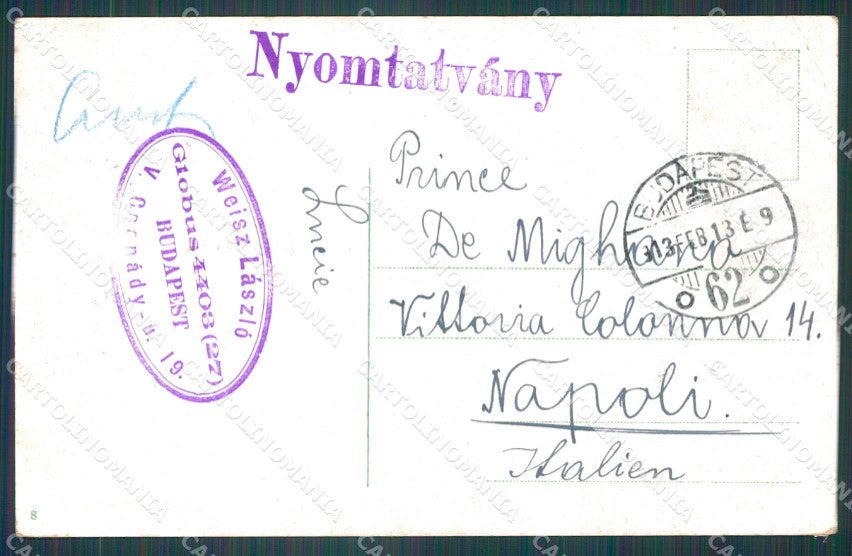 Nyomtatvány
Weisz László
Globus 4403 (27)
BUDAPEST
V. Csanády-u. 19.
Lucie
Prince
De Migliano
Vittoria Colonna 14.
Napoli.
Italien
BUDAPEST
913 FEB 13 É 9
62
8
CARTOLINOMANIA